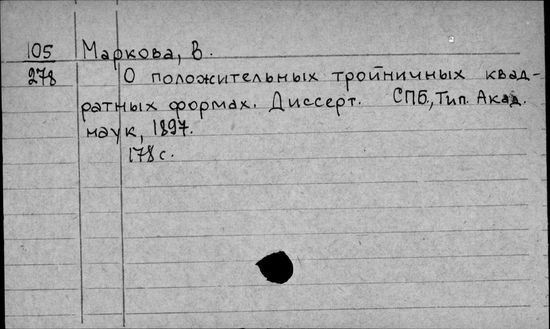 105 Маркова, В.
278 О положительных тройничных квад-
ратных формах. Диссерт. СПБ., Тип. Акад.
наук, 1897.
178 с.